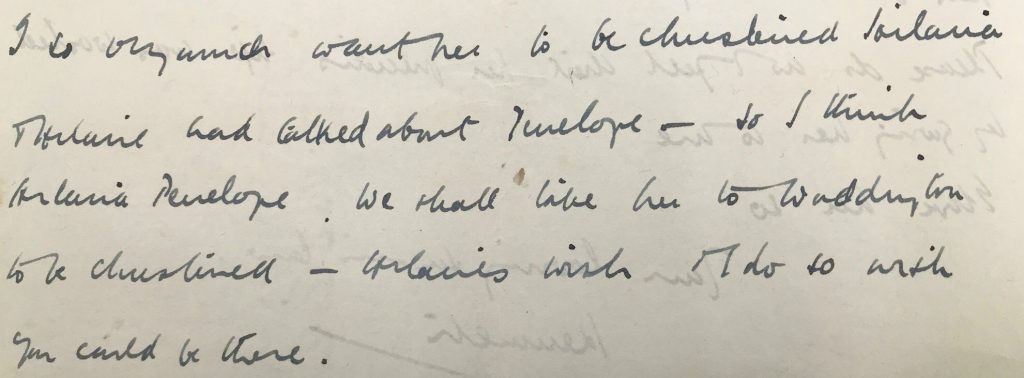 I so very much want her to be christined Hilaria
& Hilarie had talked about Penelope — so I think
Hilaria Penelope. We shall take her to Waddington
to be christined — Hilaries wish & I do so wish
you could be there.